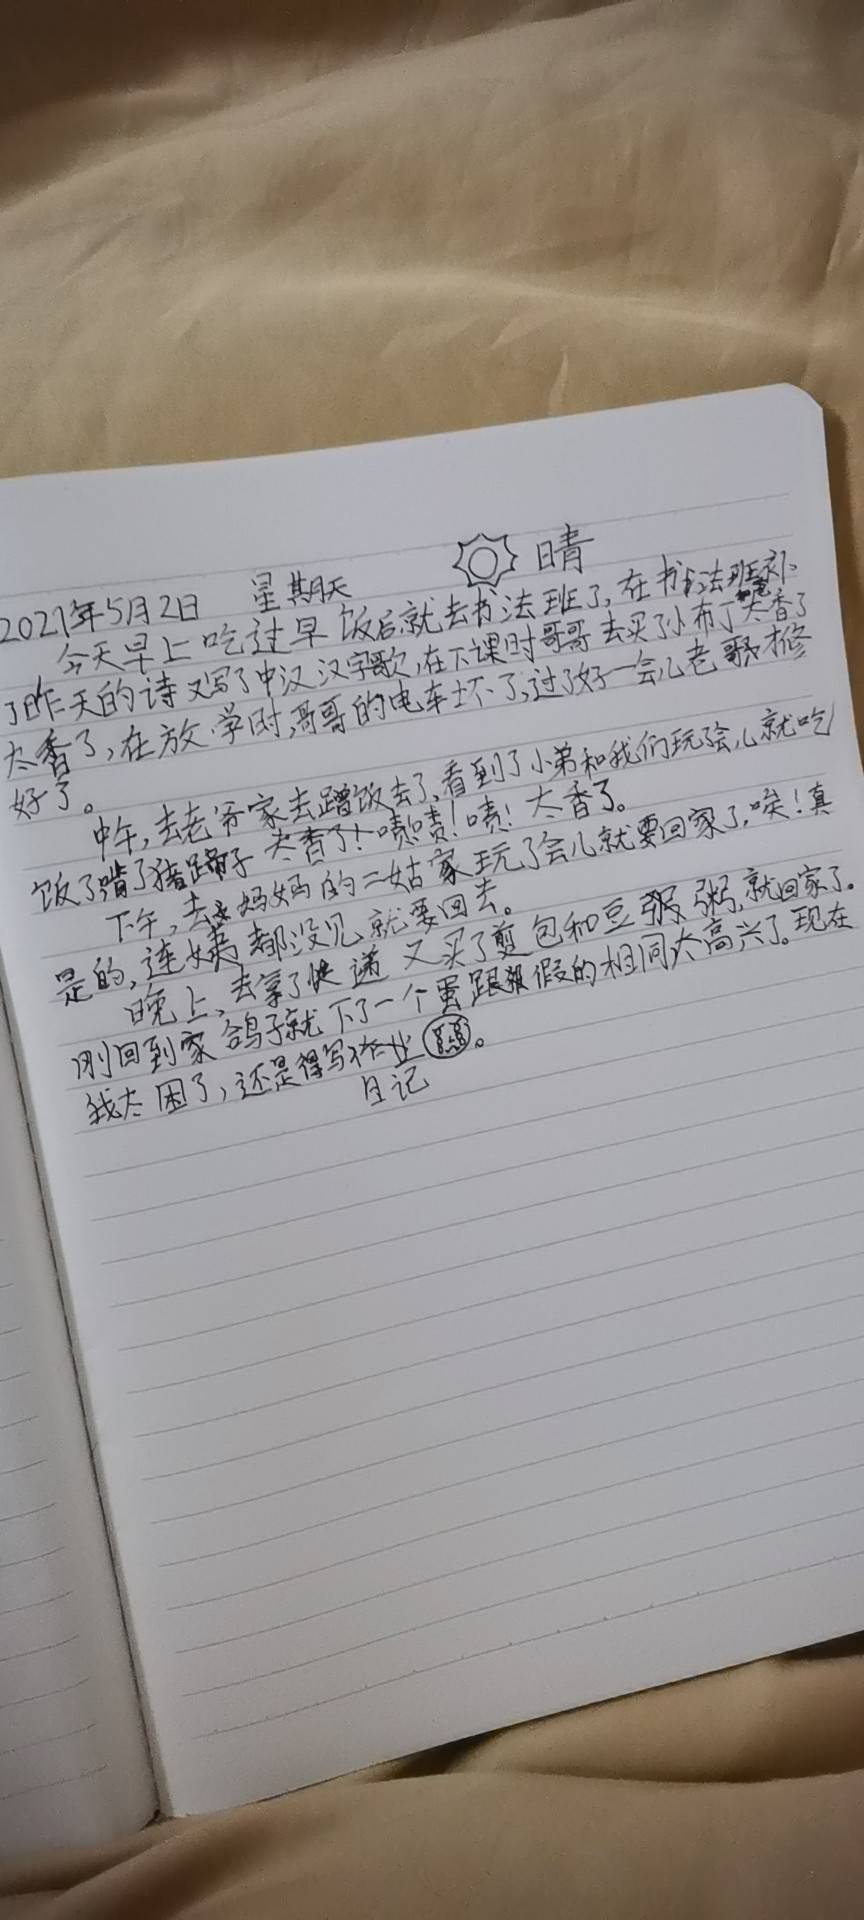 2021年5月2日 星期天 晴
今天早上吃过早饭后,就去书法班了,在书法班补
了昨天的诗又写了中汉汉字歌,在下课时哥哥去买了小布丁太香了
太香了,在放学时,哥哥的电车坏了,过了好一会儿老哥才修
好了。
中午,去老爷家去蹭饭去了,看到了小弟和我们玩了会儿就吃
饭了啃了猪蹄子太香了!啧啧!啧!太香了。
下午,去妈妈的二姑家玩了会儿就要回家了,唉!真
是的,连姨都没见就要回去。
晚上,去拿了快递又买了煎包和豆粥,就回家了。
刚回到家鸽子就下了一个蛋跟假的相同太高兴了。现在
我太困了,还是得写作业。
日记